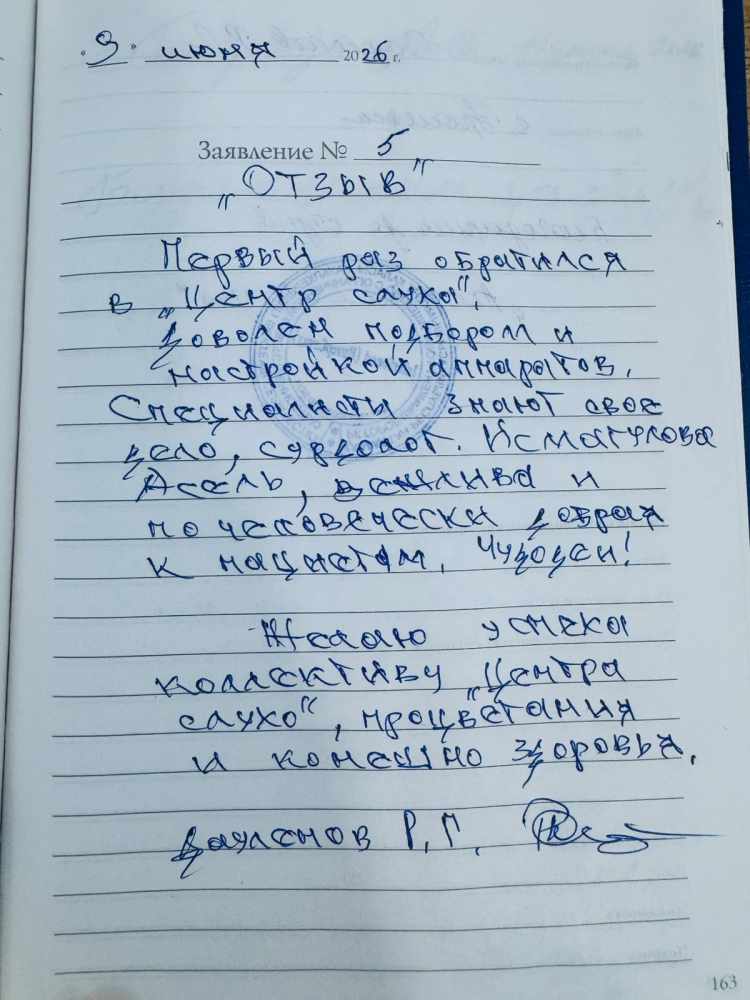 9 июня 2026 г.
Заявление № 5
„Отзыв"
Первый раз обратился
в „Центр слуха",
доволен подбором и
настройкой аппаратов.
Специалисты знают свое
дело, сурдолог. Исмагулова
Асель, вежлива и
по человечески добрая
к пациетам,
Желаю успеха
коллективу „Центра
слуха", процветания
и конешно здоровья.
Р. Г.
163